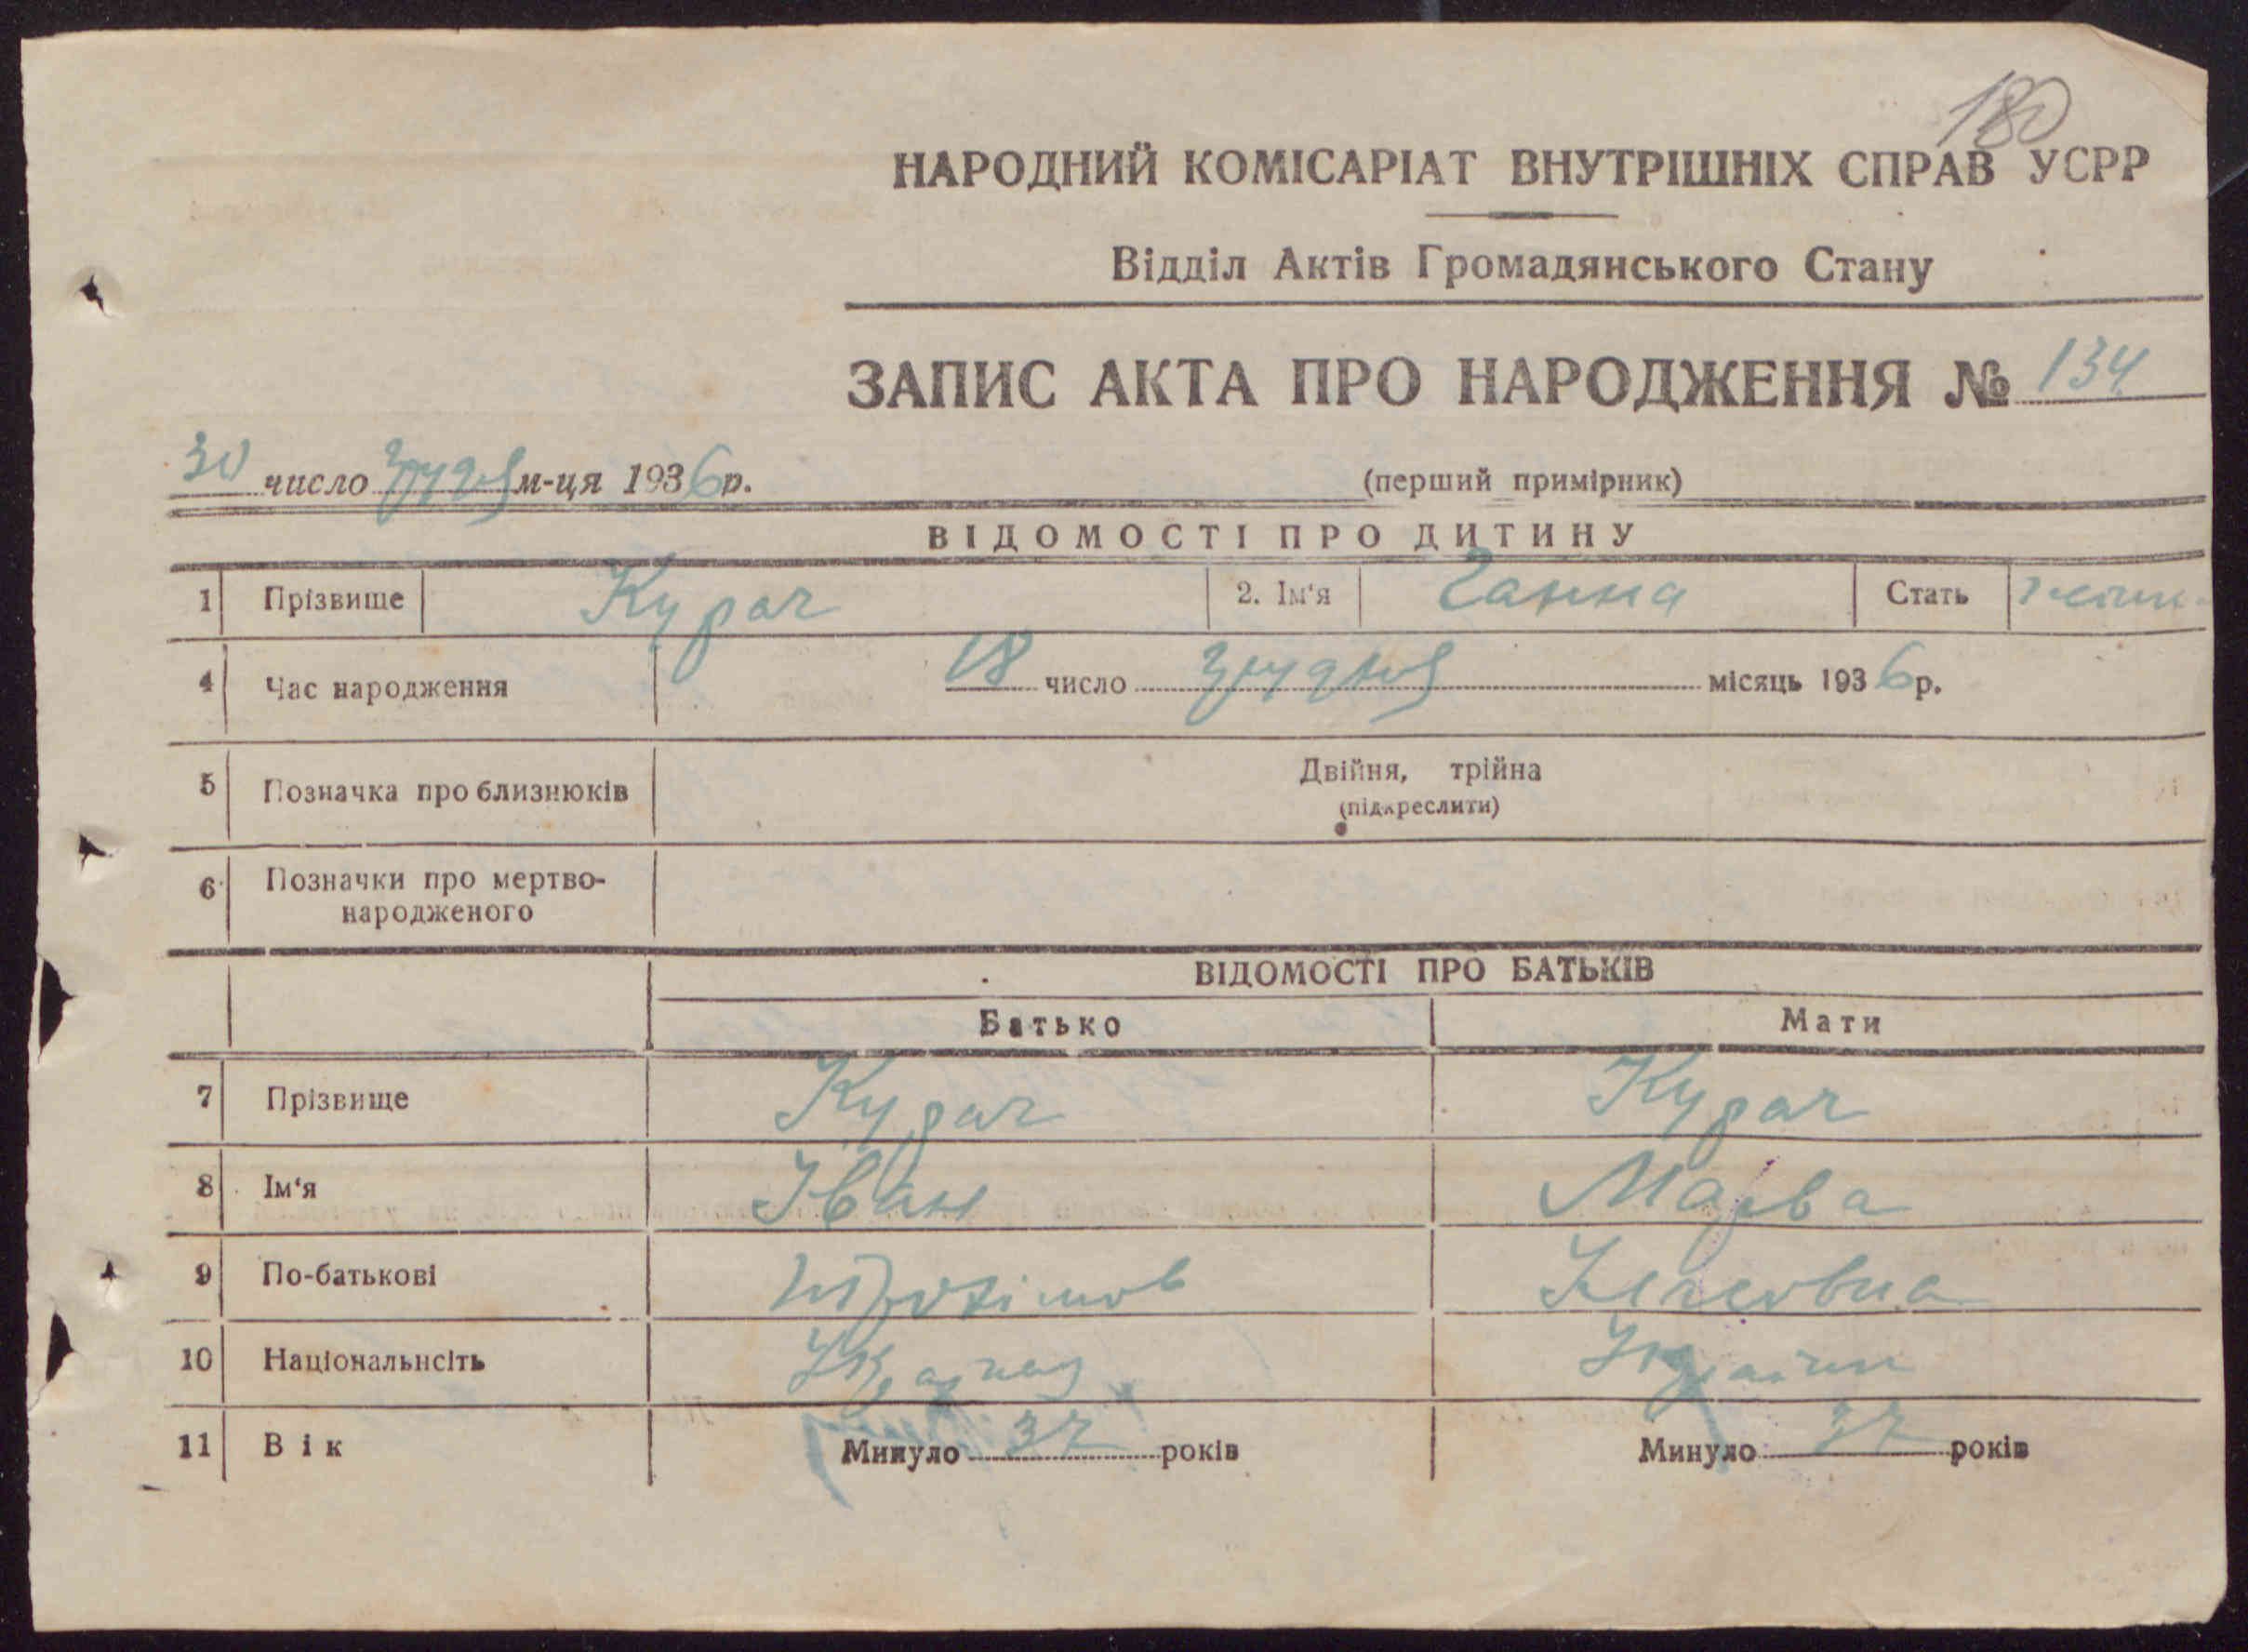 180
НАРОДНИЙ КОМІСАРІАТ ВНУТРІШНІХ СПРАВ УСРР
Відділ Актів Громадянського Стану
ЗАПИС АКТА ПРО НАРОДЖЕННЯ № 134
30 число грудня м-ця 1936 р.
(перший примірник)
ВІДОМОСТІ ПРО ДИТИНУ
1 Прізвище Курач 2. Ім'я Ганна Стать
4 Час народження 18 число грудня місяць 1936 р.
5 Позначка про близнюків Двійня, трійна
(підкреслити)
6 Позначки про мертво-
народженого
ВІДОМОСТІ ПРО БАТЬКІВ
Батько Мати
7 Прізвище Курач Курач
8 Ім'я Іван Марва
9 По-батькові
10 Національнсіть
11 Вік Минуло 37 років Минуло 37 років